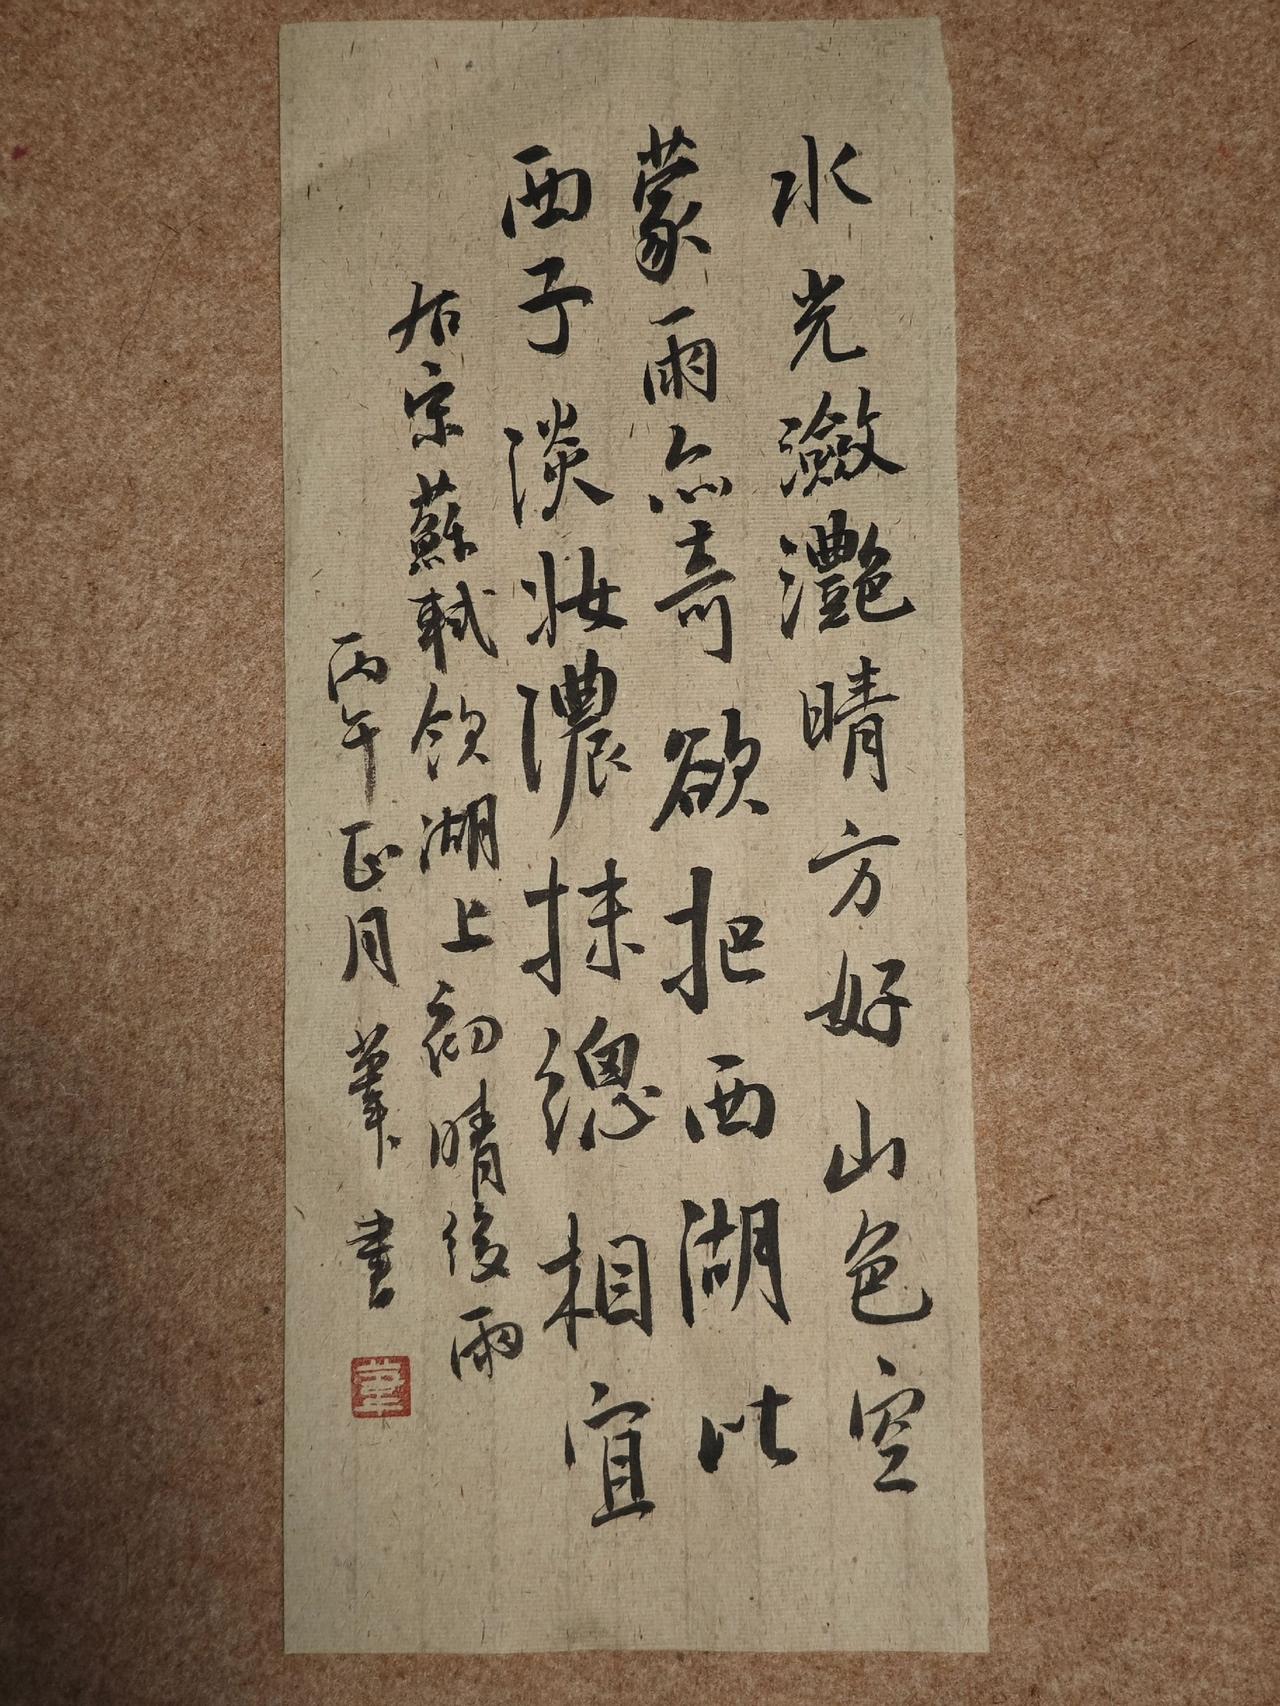 水光瀲灩晴方好山色空
蒙雨亦奇欲把西湖比
西子淡妝濃抹總相宜
右宋蘇軾飲湖上初晴後雨
丙午正月 書